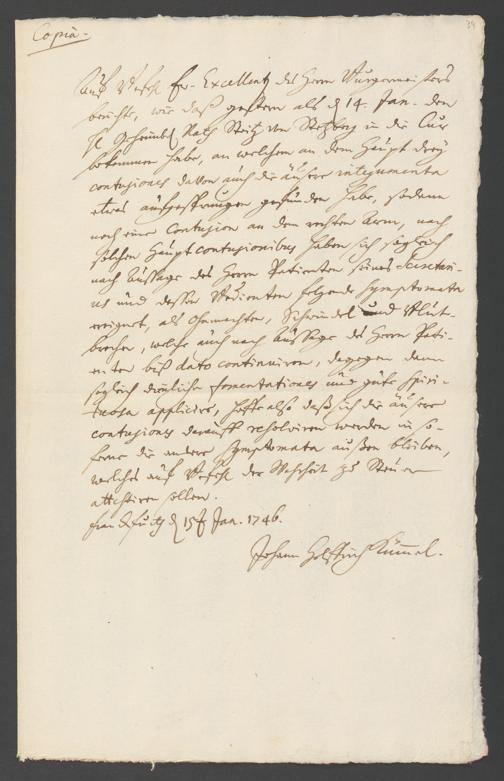 Copia.
39
Auf Befehl Ew. Excellentz des Herrn Burgermeisters
berichte, wie daß gestern als d 14. Jan. den
H. Geheimbd. Rath von in die Cur
bekommen habe, an welchem an dem Haupt drey
contusiones davon auch die äußere integumenta
etwas aufgesprungen gefunden habe, sodann
noch eine Contusion an dem rechten Arm, nach
solchen Haupt contusionibus haben sich sogleich
nach Aussage des Herrn Patienten seines Secretari-
us und dessen Bedienten folgende symptomata
ereignet, als Ohnmachten, Schwindel und Blut-
brechen, welche auch nach Aussage des Herrn Pati-
enten biß dato continuiren, dagegen dann
sogleich dienliche fomentationes und gute spiri-
tuosa applicire, hoffe also daß sich die äußere
contusiones darauff resolviren werden in so-
ferne die andere symptomata außen bleiben,
welches auf Befehl der Wahrheit zu Steuer
attestiren sollen.
d 15t Jan. 1746.
Johann Kümmel.